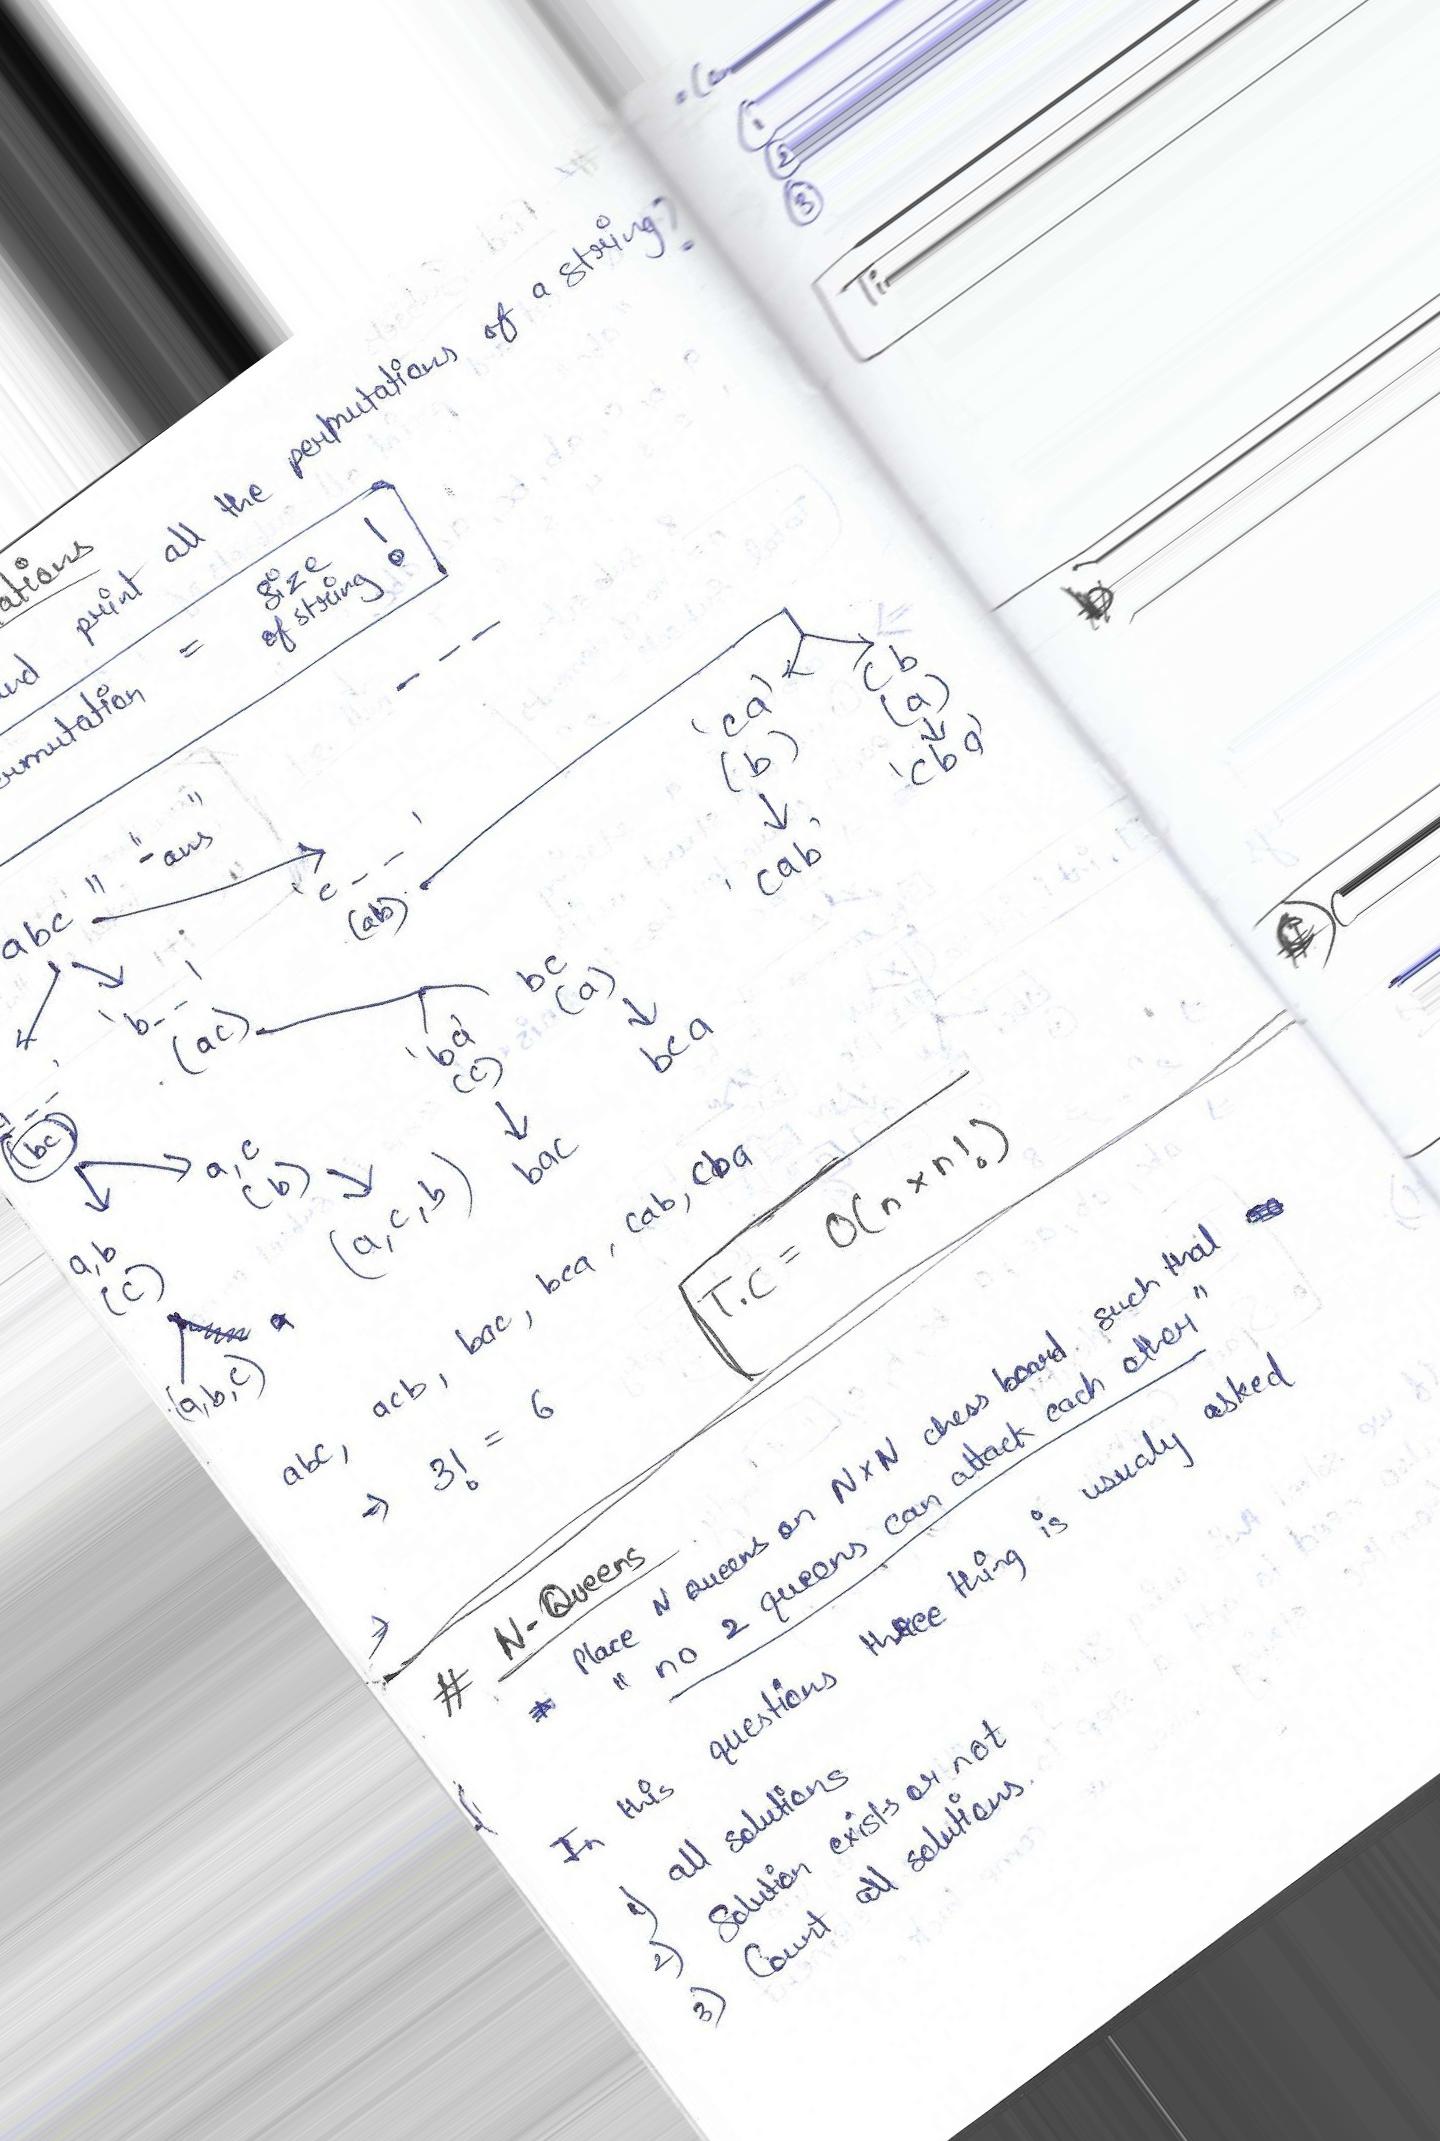 print all the permutations of a string?
= size
of string!
abc " " -ans
'c - - '
(ab)
'ca'
(b)
'cab'
cb
(a)
'cba'
'b - - '
(ac)
'ba'
(c)
bac
bc
(a)
bca
(bc)
a,c
(b)
(a,c,b)
a,b
(c)
(a,b,c)
abc, acb, bac, bca, cab, cba
=> 3! = 6
T.C = O(n x n!)
# N-Queens
* Place N queens on NxN chess board such that
" no 2 queens can attack each other"
In this questions three thing is usualy asked
1) all solutions
2) Solution exists or not
3) Count all solutions.
1
2
3